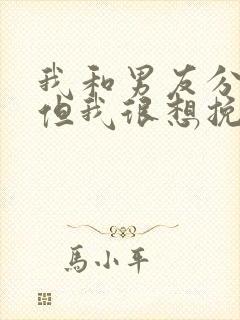 我和男友分
但我很想挽
馬小平